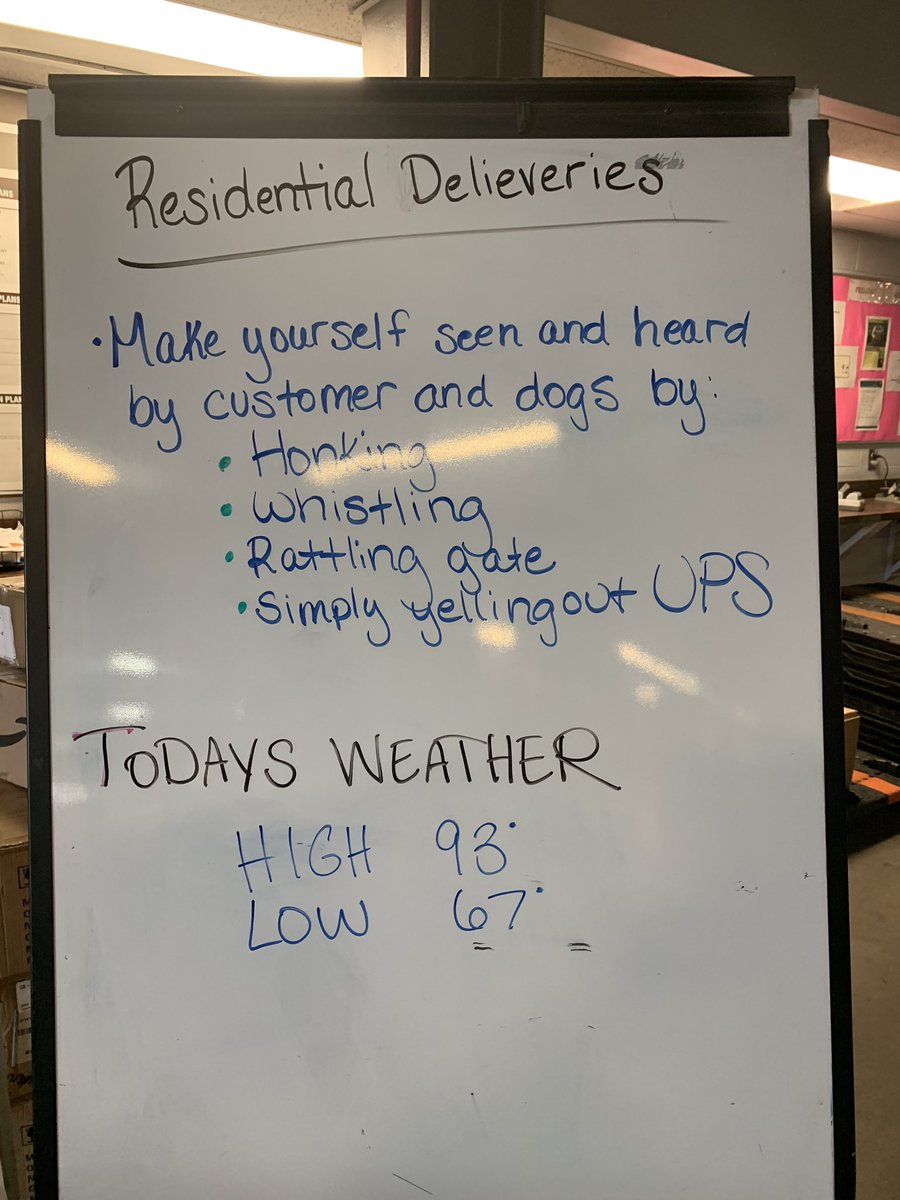 Residential Delieveries
• Make yourself seen and heard
by customer and dogs by:
• Honking
• Whistling
• Rattling gate
• Simply yelling out UPS
TODAYS WEATHER
HIGH 93°
LOW 67°